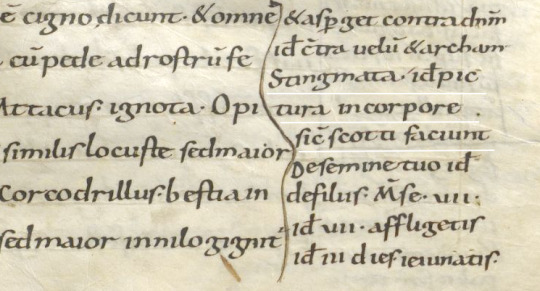 ē cigno dicunt · &omnē
cū pede adrostrū fe
Attacus· ignota· Opi
similis locuste sed maior
Corcodrillus bestia in
sed maior in nilo gignit
&asp̄get contra dn̄m
id̄ c̄tra velū & archam
Stingmata· id̄ pic
tura in corpore .
sic̄ scotti faciunt
De semine tuo id̄
de filiis· M̄se· vii·
id̄ vii· affligetis
id̄ in dies ieiunatis·